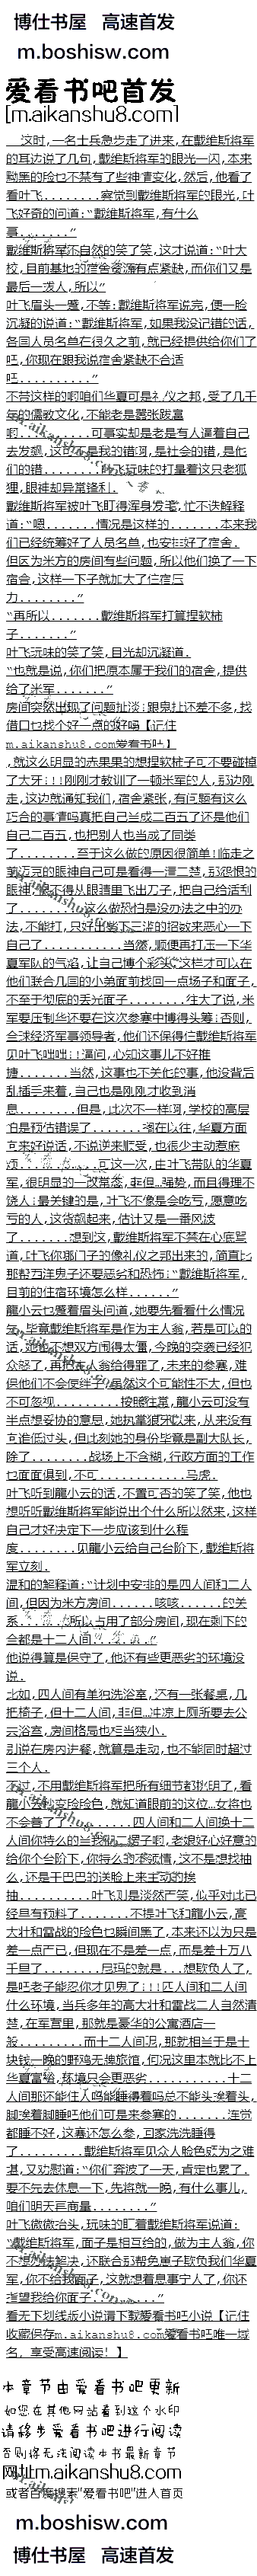 博仕书屋 高速首发
m.boshisw.com
爱看书吧首发
[m.aikanshu8.com]
这时,一名士兵急步走了进来,在戴维斯将军
的耳边说了几句,戴维斯将军的眼光一闪,本来
黝黑的脸也不禁有了些神情变化,然后,他看了
看叶飞........察觉到戴维斯将军的眼光,叶
飞好奇的问道:“戴维斯将军,有什么
事.......”
戴维斯将军不自然的笑了笑,这才说道:“叶大
校,目前基地的宿舍资源有点紧缺,而你们又是
最后一拨人,所以”
叶飞眉头一蹙,不等:戴维斯将军说完,便一脸
沉凝的说道:“戴维斯将军,如果我没记错的话,
各国人员名单在很久之前,就已经提供给你们了
吧,你现在跟我说宿舍紧缺不合适
吧..........”
不带这样的啊咱们华夏可是礼仪之邦,受了几千
年的儒教文化,不能老是嚣张跋扈
啊..........可事实却是老是有人逼着自己
去发飙,这都不是我的错啊,是社会的错,是他
们的错........叶飞玩味的打量着这只老狐
狸,眼神却异常锋利.
戴维斯将军被叶飞盯得浑身发毛,忙不迭解释
道:“嗯.......情况是这样的.......本来我
们已经统筹好了人员名单,也安排好了宿舍.
但因为米方的房间有些问题,所以他们换了一下
宿舍,这样一下子就加大了住宿压
力........”
“再所以.......戴维斯将军打算捏软柿
子.......”
叶飞玩味的笑了笑,目光却沉凝道.
“也就是说,你们把原本属于我们的宿舍,提供
给了米军.......”
房间突然出现了问题扯淡;跟鬼扯还差不多,找
借口也找个好一点的好吗【记住
m.aikanshu8.com爱看书吧】
,就这么明显的赤果果的想捏软柿子可不要碰掉
了大牙;!!刚刚才教训了一顿米军的人,那边刚
走,这边就通知我们,宿舍紧张,有问题有这么
巧合的事情吗真把自己当成二百五了还是他们
自己二百五,也把别人也当成了同类
了........至于这么做的原因很简单!临走之
前迈克的眼神自己可是看得一清二楚,那怨恨的
眼神,恨不得从眼睛里飞出刀子,把自己给活剐
了.........这么做恐怕是没办法之中的办
法,不能打,只好出萝下三滥的招数来恶心一下
自己了...........当然,顺便再打压一下华
夏军队的气焰,让自己博个彩头,这样才可以在
他们联合几国的小弟面前找回一点场子和面子,
不至于彻底的丢光面子........往大了说,米
军要压制华还要在这次参赛中博得头筹;否则,
全球经济军事领导者,他们还保得住戴维斯将军
见叶飞咄咄;!逼问,心知这事儿不好推
搪........当然,这事也不关他的事,他没背后
乱插手来着,自己也是刚刚才收到消
息........但是,此次不一样啊,学校的高层
怕是预估错误了.......搁在以往,华夏方面
向来好说话,不说逆来顺受,也很少主动惹麻
烦.........可这一次,由叶飞带队的华夏
军,很明显的一改常态,非但..强势,而且得理不
饶人;最关键的是,叶飞不像是会吃亏,愿意吃
亏的人,这货飙起来,估计又是一番风波
了.......想到这,戴维斯将军不禁在心底骂
道,叶飞你哪门子的像礼仪之邦出来的,简直比
那帮西洋鬼子还要恶劣和恐怖;“戴维斯将军,
目前的住宿环境怎么样......”
龍小云也蹙着眉头问道,她要先看看什么情况
先,毕竟戴维斯将军是作为主人翁,若是可以的
话,她也不想双方闹得太僵,今晚的突袭已经犯
众怒了,再把主人翁给得罪了,未来的参赛,难
保他们不会使绊子;虽然这个可能性不大,但也
不可忽视.........按照往常,龍小云可没有
半点想妥协的意思,她执掌狼牙以来,从来没有
向谁低过头,但此刻她的身份毕竟是副大队长,
除了........战场上不含糊,行政方面的工作
也面面俱到,不可...........马虎.
叶飞听到龍小云的话,不置可否的笑了笑,他也
想听听戴维斯将军能说出个什么所以然来,这样
自己才好决定下一步应该到什么程
度........见龍小云给自己台阶下,戴维斯将
军立刻.
温和的解释道:“计划中安排的是四人间和二人
间,但因为米方房间......咳咳......的关
系.......所以占用了部分房间,现在剩下的
全都是十二人间.........”
他说得算是保守了,他还有些更恶劣的环境没
说.
比如,四人间有单独洗浴室,还有一张餐桌,几
把椅子,但十二人间,非但...冲凉上厕所要去公
共浴室,房间格局也相当狭小.
别说在房内进餐,就算是走动,也不能同时超过
三个人.
不过,不用戴维斯将军把所有细节都挑明了,看
龍小云骤变脸脸色,就知道眼前的这位...女将也
不会善了了..........四人间和二人间换十二
人间你特么的当我们二愣子啊,老娘好心好意的
给你个台阶下,你特么的不领情,这不是想找抽
么,还是干巴巴的送脸上来主动的挨
抽..........叶飞则是淡然一笑,似乎对此已
经早有预料了.......不提叶飞和龍小云,高
大壮和雷战的脸色也瞬间黑了,本来还以为只是
差一点而已,但现在不是差一点,而是差十万八
千里了........尼玛的就是...想欺负人了,
是吧老子能忍你才见鬼了;!!四人间和二人间
什么环境,当兵多年的高大壮和雷战二人自然清
楚,在军营里,那就是豪华的公寓酒店一
般.........而十二人间呢,那就相当于是十
块钱一晚的野鸡无牌旅馆,何况这里本就比不上
华夏富裕,环境只会更恶劣..........十二
人间那还能住人吗能睡得着吗总不能头挨着头,
脚挨着脚睡吧他们可是来参赛的.......连觉
都睡不好,这赛还怎么参,回家洗洗睡得
了.........戴维斯将军见众人脸色颇为之难
堪,又劝慰道:“你们奔波了一天,肯定也累了.
要不先去休息一下,先将就一晚,有什么事儿,
咱们明天再商量........”
叶飞微微抬头,玩味的盯着戴维斯将军说道:
“戴维斯将军,面子是相互给的,做为主人翁,你
不想办法解决,还联合那帮兔崽子欺负我们华夏
军,你不给我面子,这就想着息事宁人了,你还
指望我给你面子.........”
看无下划线版小说请下载爱看书吧小说【记住
收藏保存m.aikanshu8.com爱看书吧唯一域
名，享受高速阅读！】
本章节由爱看书吧更新
如您在其他网站看到这个水印
请移步爱看书吧进行阅读
否则将无法阅读本书最新章节
网址m.aikanshu8.com
或者百度搜索"爱看书吧"进入首页
m.boshisw.com
博仕书屋 高速首发